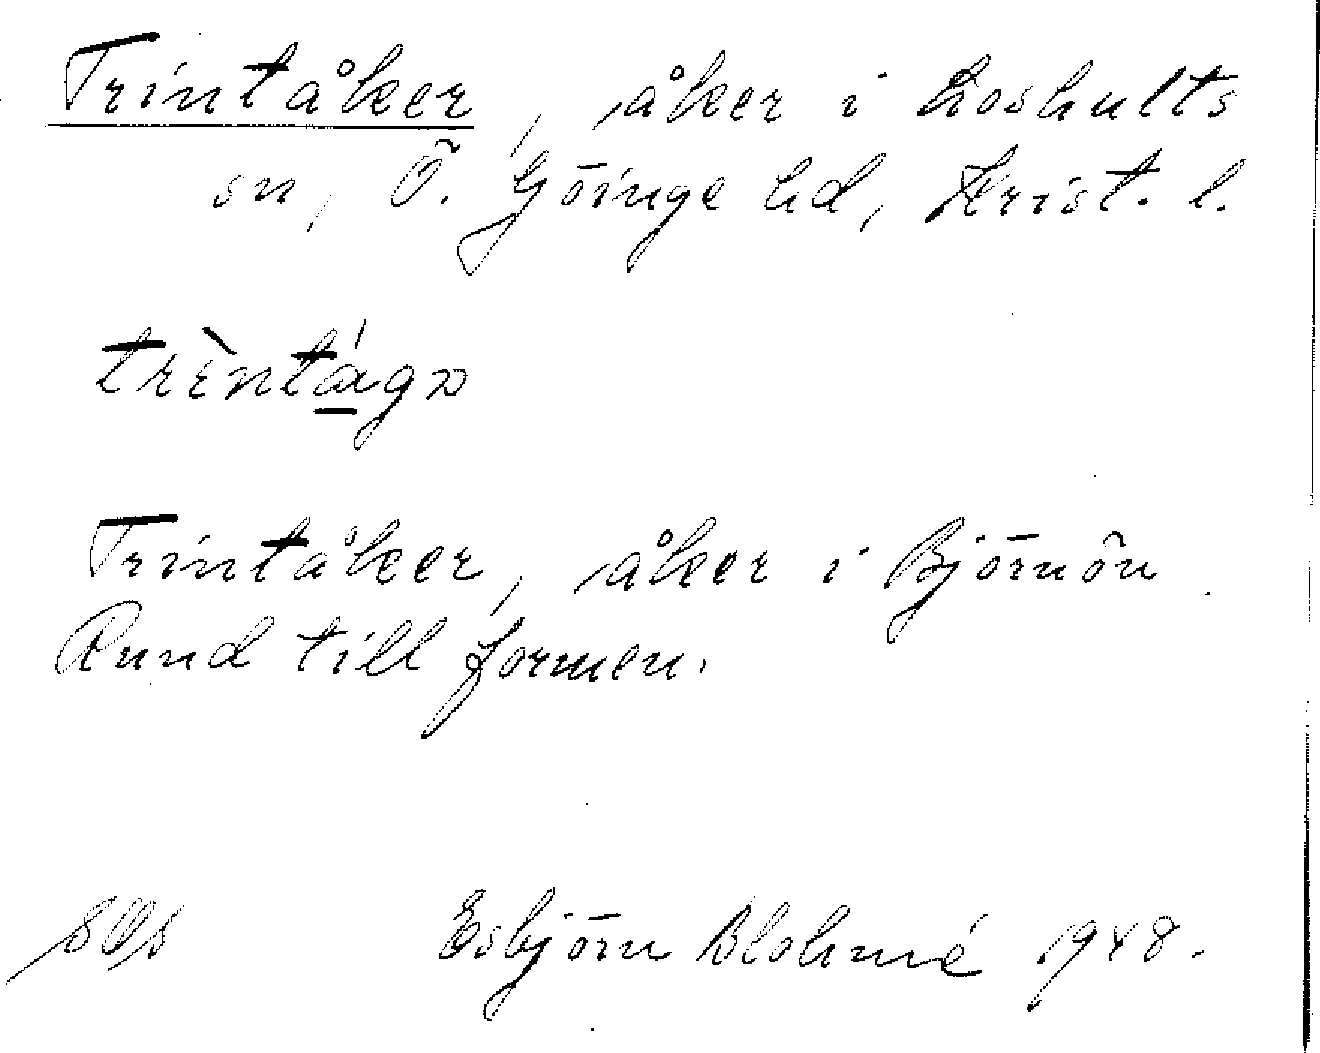 Trintåker, åker i Loshults
sn, Ö. Göinge hd, Krist. l.
trèntágɒ
Trintåker, åker i Björnön
Rund till formen.
Esbjörn Blohmé 1948.